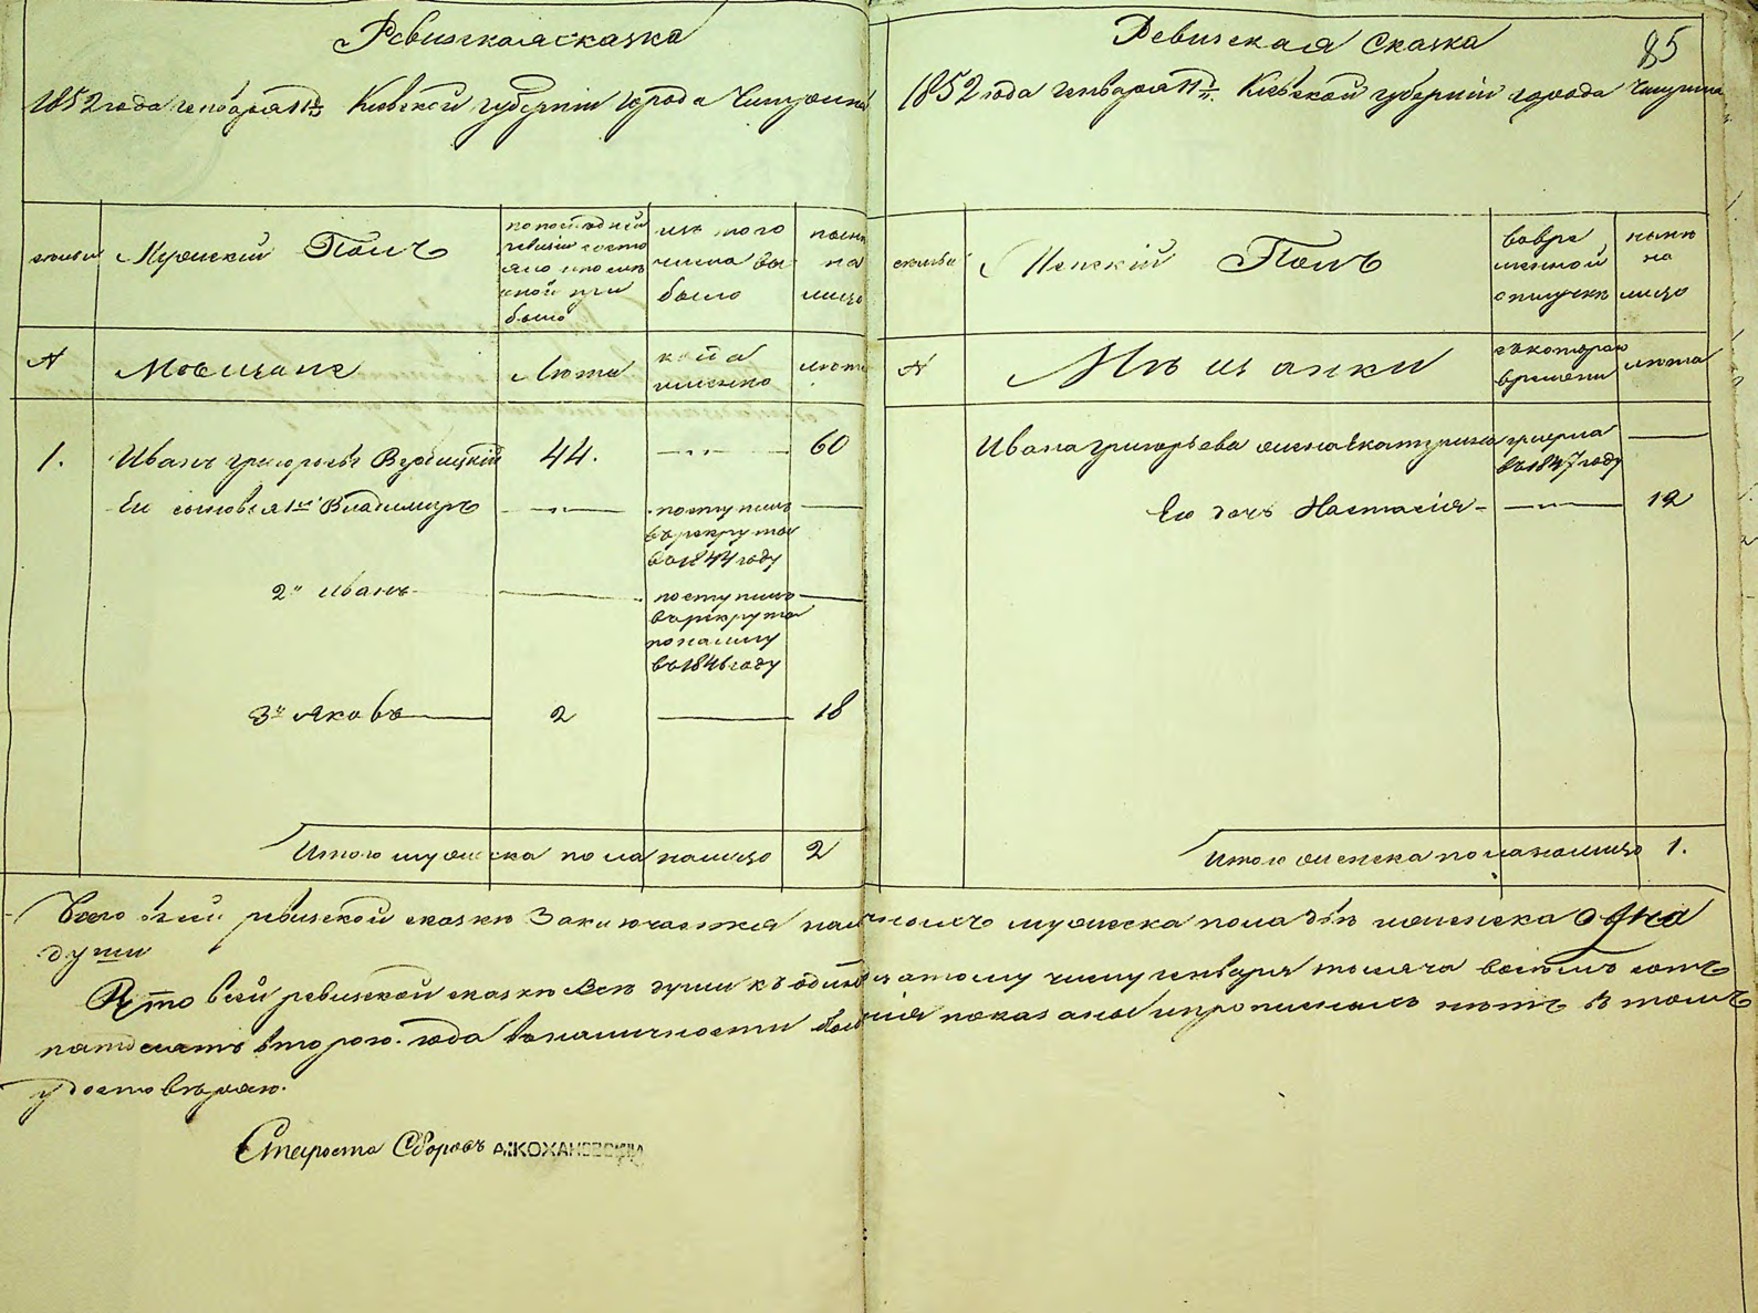 Ревизская сказка
1852 года генваря 11 д. Киевской губернии города Чигирина
семьи
Мужеский Полъ
по последней ревизіи состояло и после оной прибыло
изъ того числа выбыло
ныне на лицо
№
Мещане
Лета
когда именно
лета
1.
Иванъ Григорьевъ Вербицкій 44. 60
Его сыновья 1й Владимиръ
поступилъ
въ рекруты
въ 1844 году
2й Иванъ
поступилъ
въ рекруты
по найму
въ 1846 году
3й Яковъ 2 18
Итого мужеска пола налицо 2
Ревизская Сказка
85
1852 года генваря 11 д. Киевской губерніи города Чигирина
семьи
Женскій Полъ
во временной отлучке
ныне на лицо
№
Мѣщанки
съ котораго времени
лета
Ивана Григорьева жена Екатерина умерла
въ 1847 году
Его дочь Настасія 12
Итого женска пола налицо 1.
Всего въ сей ревизской сказкѣ Заключается наличныхъ мужеска пола двѣ и женска одна
души
Что въ сей ревизской сказкѣ все души къ одинадцатому числу генваря тысяча восемь сотъ
пятдесятъ второго года въ наличности бывшія показаны и прописныхъ нетъ въ томъ
удостовѣряю.
Староста Сборовъ А. КОХАНЕВСКІЙ